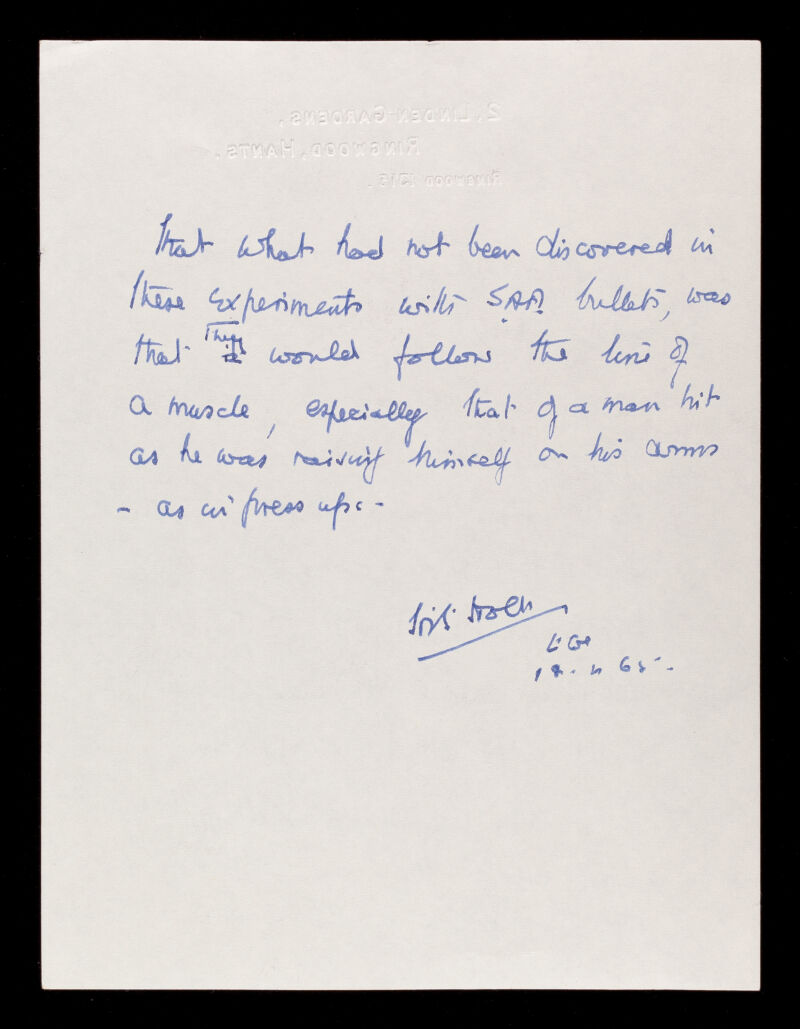 2, LINDEN GARDENS,
RINGWOOD, HANTS.
RINGWOOD
that what had not been discovered in
these experiments with S.A.A. bullets, was
that They would follow the line of
a muscle, especially that of a man hit
as he was raising himself on his arms
- as in press ups. -
65 -.